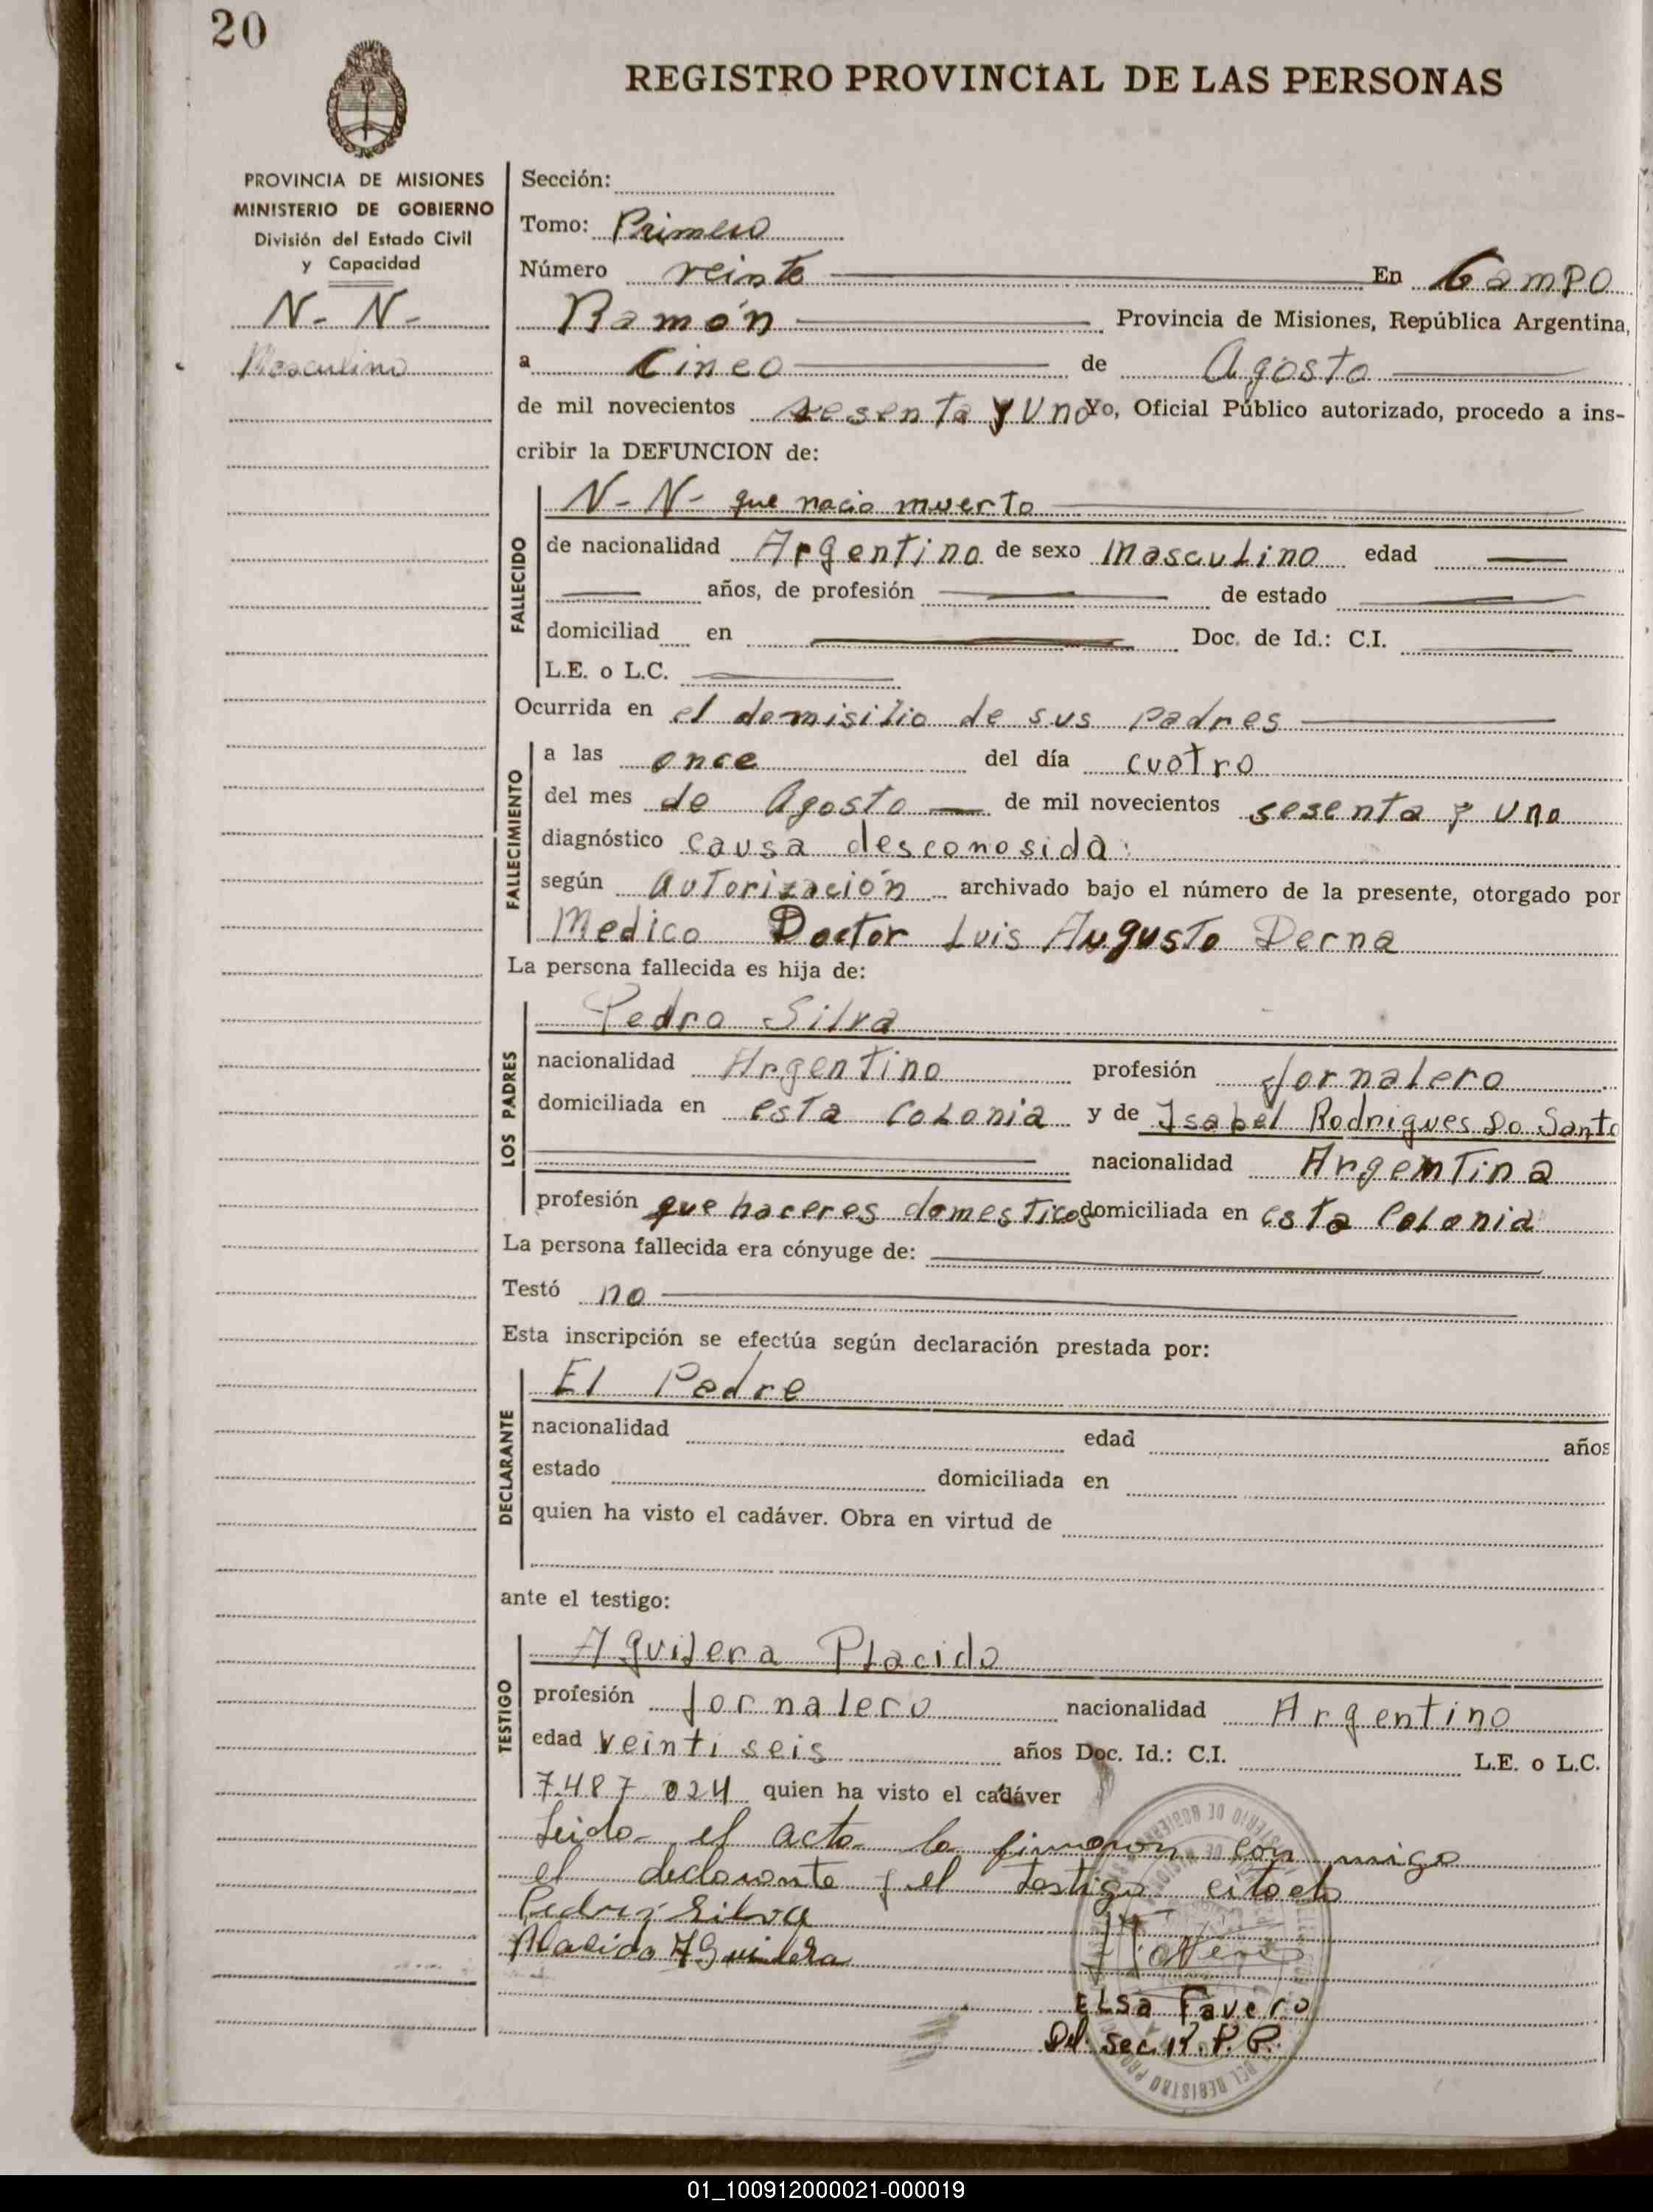 20
REGISTRO PROVINCIAL DE LAS PERSONAS
PROVINCIA DE MISIONES
MINISTERIO DE GOBIERNO
División del Estado Civil
y Capacidad
N- N-
Masculino
Sección:
Tomo: Primero
Número veinte En Campo
Ramón Provincia de Misiones, República Argentina,
a Cinco de Agosto
de mil novecientos sesenta y uno Yo, Oficial Público autorizado, procedo a ins-
cribir la DEFUNCION de:
FALLECIDO
N- N- que nacio muerto
de nacionalidad Argentino de sexo masculino edad
años, de profesión de estado
domiciliad en Doc. de Id.: C.I.
L.E. o L.C.
Ocurrida en el domisilio de sus padres
FALLECIMIENTO
a las once del día cuatro
del mes de Agosto de mil novecientos sesenta y uno
diagnóstico causa desconosida
según autorización archivado bajo el número de la presente, otorgado por
Medico Doctor Luis Augusto Derna
La persona fallecida es hija de:
LOS PADRES
Pedro Silva
nacionalidad Argentino profesión Jornalero
domiciliada en esta Colonia y de Isabel Rodrigues Do Santo
nacionalidad Argentina
profesión que haceres domesticos domiciliada en esta Colonia
La persona fallecida era cónyuge de:
Testó no
Esta inscripción se efectúa según declaración prestada por:
DECLARANTE
El Padre
nacionalidad edad años
estado domiciliada en
quien ha visto el cadáver. Obra en virtud de
ante el testigo:
TESTIGO
Aguilera Placido
profesión Jornalero nacionalidad Argentino
edad veinti seis años Doc. Id.: C.I. L.E. o L.C.
7.487.024 quien ha visto el cadáver
Leido el acto lo firmaron con migo
el declarante y el testigo citado
Pedro Silva
Placido Aguilera
Elsa Favero
Del. Sec. R. P. P.
01_100912000021-000019